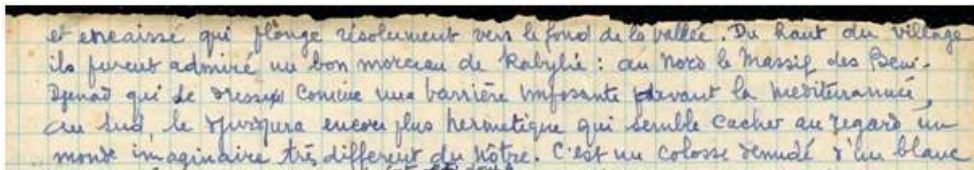 et encaissé qui plonge résolument vers le fond de la vallée. Du haut du village
ils purent admiré un bon morceau de Kabylie : au nord le Massif des Beni-
Djenad qui se dresse comme une barrière imposante devant la mediterrannée,
au sud, le Djurdjura encore plus hermetique qui semble cacher au regard un
monde imaginaire très different du nôtre. C'est un colosse denudé d'un blanc